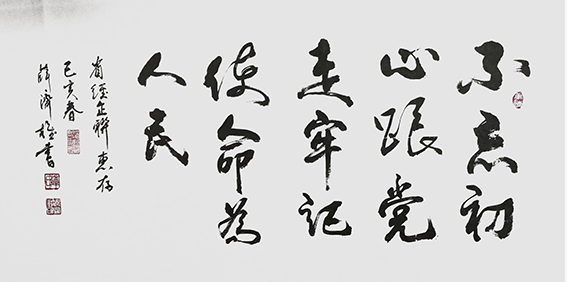 不忘初
心跟党
走牢记
使命为
人民
省经企联惠存
己亥春
书